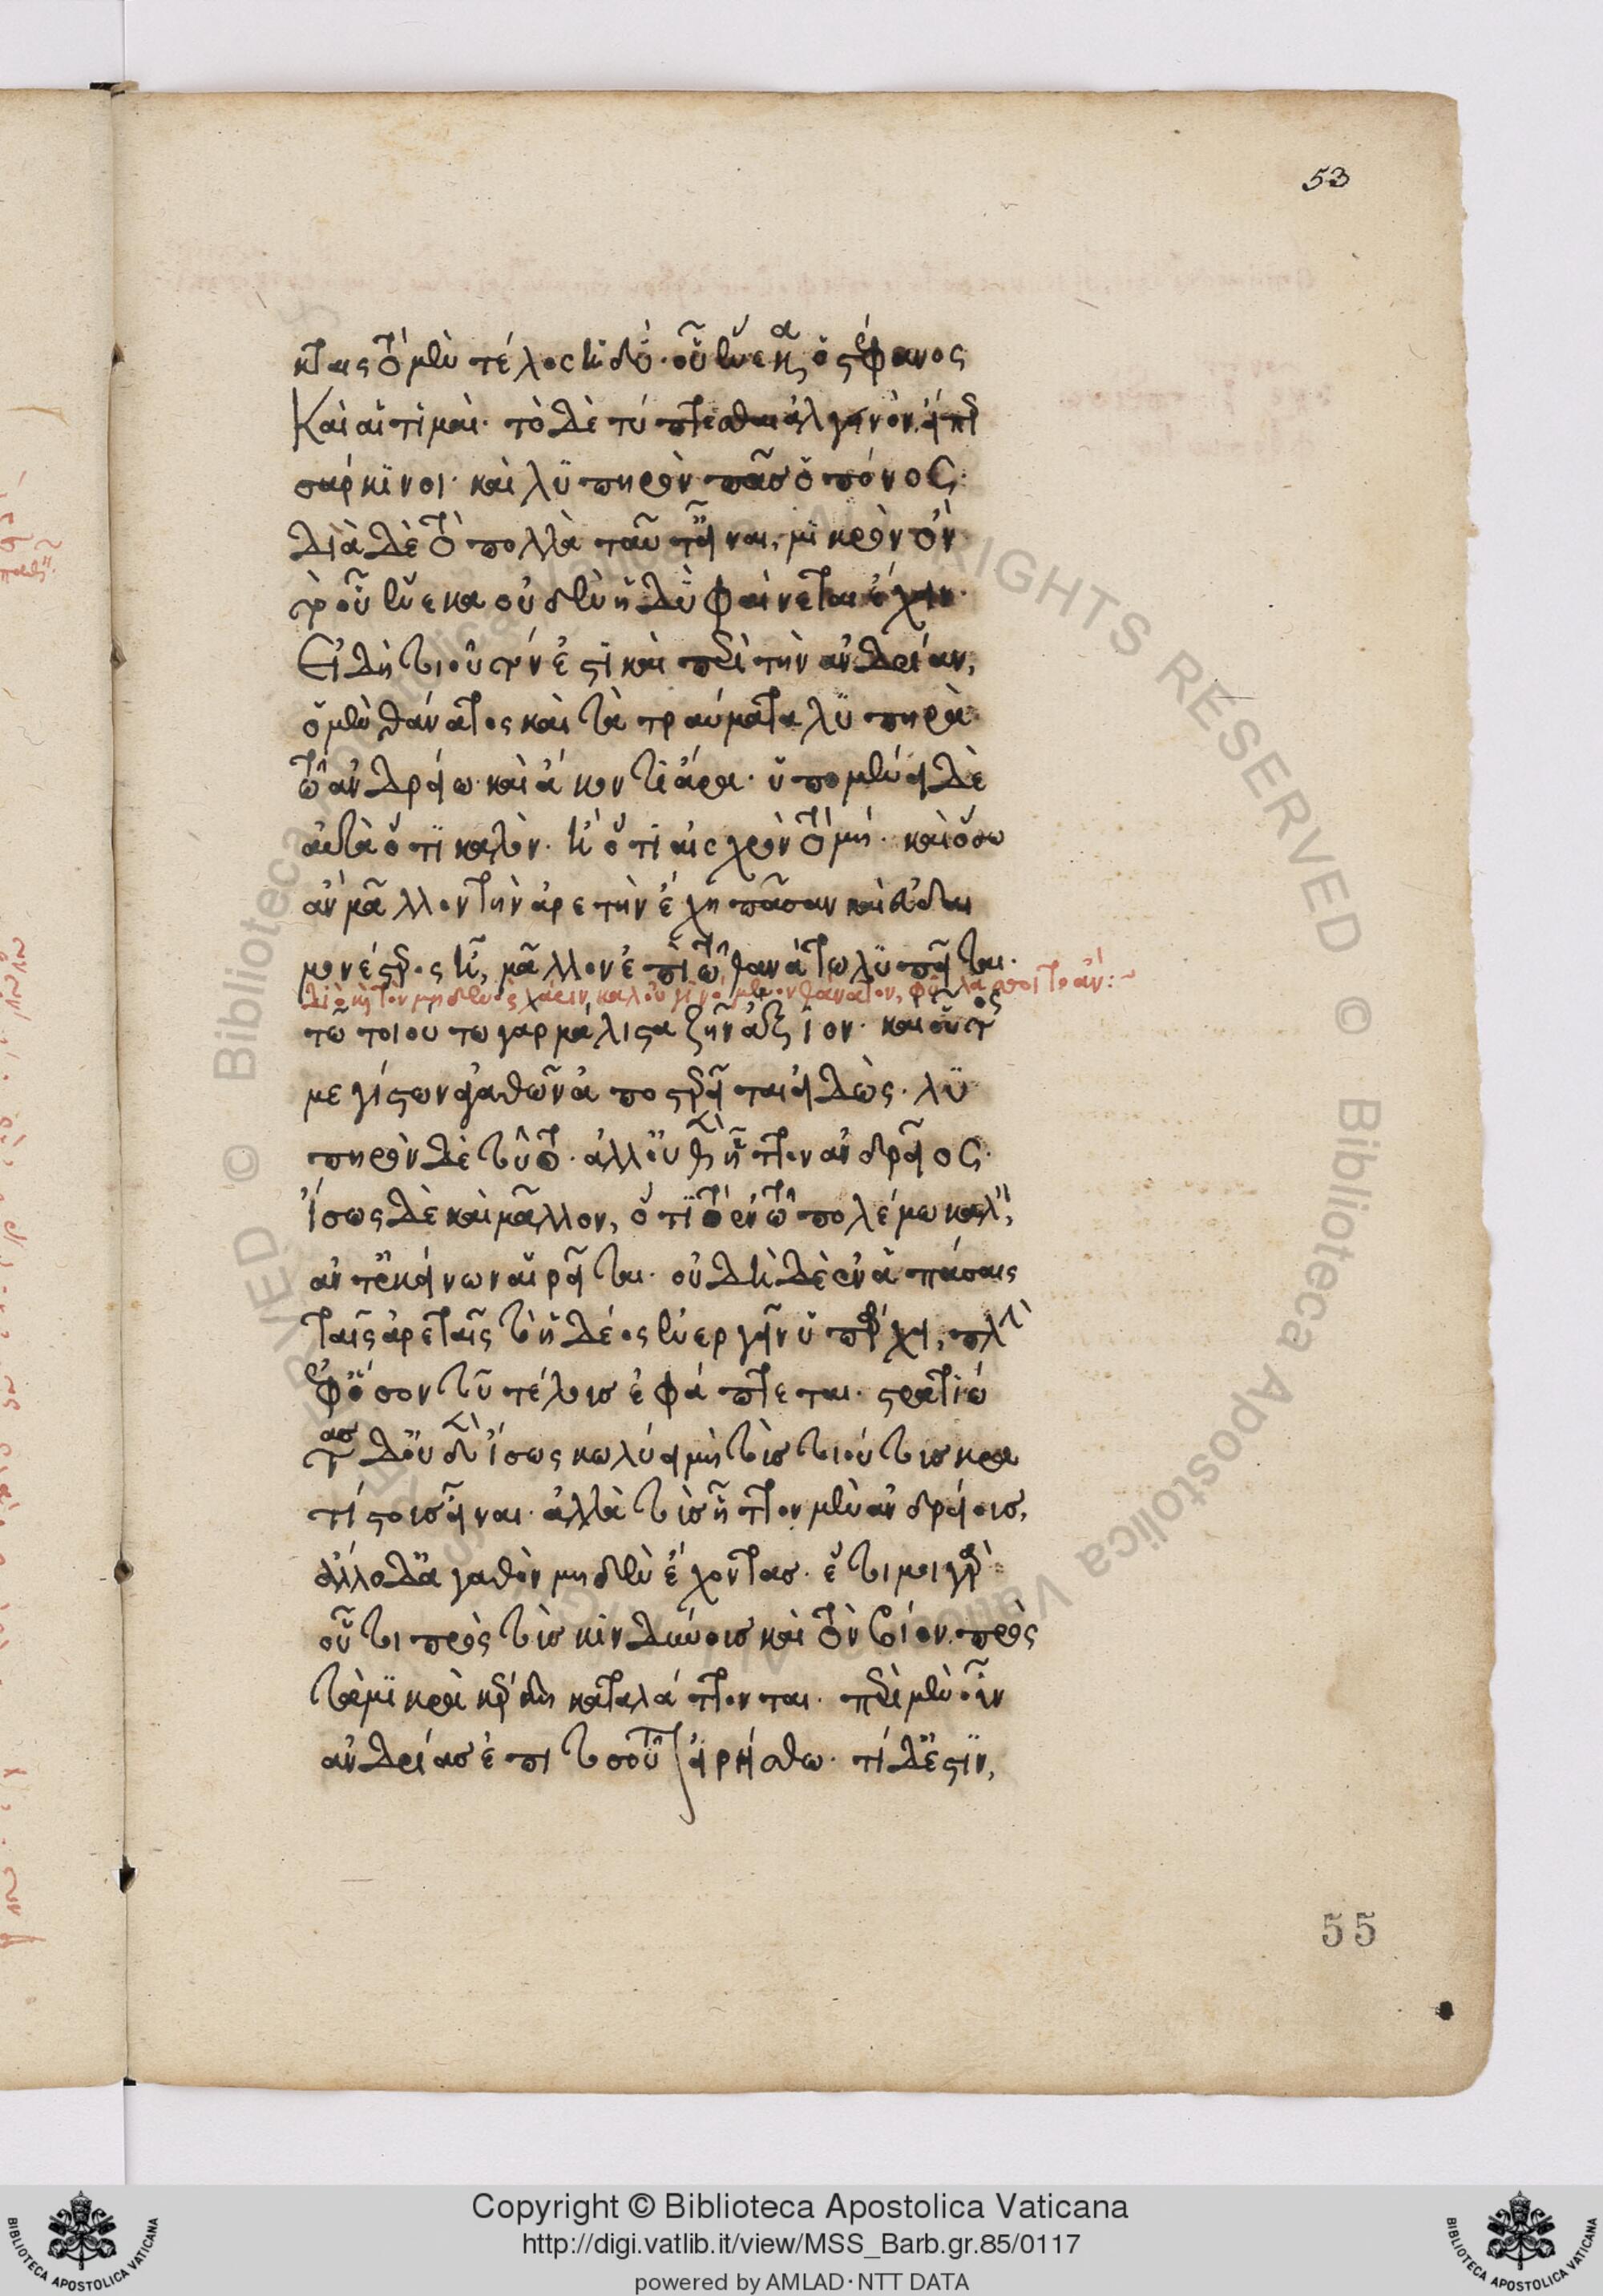 53
κταις τὸ μὲν τέλος ἡδύ· οὗ ἕνεκα ὁ στέφανος
Καὶ αἱ τιμαί· τὸ δὲ τύπτεσθαι ἀλγεινὸν, εἴπερ
σάρκινοι· καὶ λυπηρὸν πᾶς ὁ πόνος·
Διὰ δὲ τὸ πολλὰ ταῦτ' εἶναι, μικρὸν ὂν
τὸ οὗ ἕνεκα οὐδὲν ἡδὺ φαίνεται ἔχειν·
Εἰ δὴ τοιοῦτόν ἐστι καὶ περὶ τὴν ἀνδρίαν,
ὁ μὲν θάνατος καὶ τὰ τραύματα λυπηρὰ
τῷ ἀνδρείω· καὶ ἄκοντι ἄρα· ὑπομένει δὲ
αὐτὰ ὅτι καλὸν· ἢ ὅτι αἰσχρὸν τὸ μή· καὶ ὅσω
ἂν μᾶλλον τὴν ἀρετὴν ἔχη πᾶσαν καὶ εὐδαι
μονέστερος ᾖ, μᾶλλον ἐπὶ τῷ θανάτω λυπεῖται·
τῷ τοιουτω γαρ μάλιστα ζῆν ἄξιον· και οὗτος
μεγίστων ἀγαθῶν ἀποστερεῖται εἰδώς· λυ
πηρὸν δὲ τοῦτο· ἀλλ' οὐδὲν ἧττον ἀνδρεῖος·
Ἴσως δὲ καὶ μᾶλλον, ὅτι τὸ ἐν τῷ πολέμω καλὸν,
ἀντ' ἐκείνων αἱρεῖται· οὐ δὴ δὲ ἐν ἁπάσαις
ταῖς ἀρεταῖς τὸ ἡδέως ἐνεργεῖν ὑπάρχει, πλὴν
ἐφ' ὅσον τοῦ τέλους ἐφάπτεται· στρατιώ
τας δ' οὐδὲν ἴσως κωλύει μὴ τοὺς τοιούτους κρα
τίστους εἶναι· ἀλλὰ τοὺς ἧττον μὲν ἀνδρείους,
ἄλλο δ' ἀγαθὸν μηδὲν ἔχοντας· ἕτοιμοι γὰρ
οὗτοι πρὸς τοὺς κινδύνους καὶ τὸν βίον πρὸς
τὰ μικρὰ κέρδη καταλάττονται· περὶ μὲν οὖν
ἀνδρίας ἐπὶ τοσοῦτον εἰρήσθω· τί δ' ἐστὶν,
55
Copyright © Biblioteca Apostolica Vaticana
http://digi.vatlib.it/view/MSS_Barb.gr.85/0117
powered by AMLAD·NTT DATA